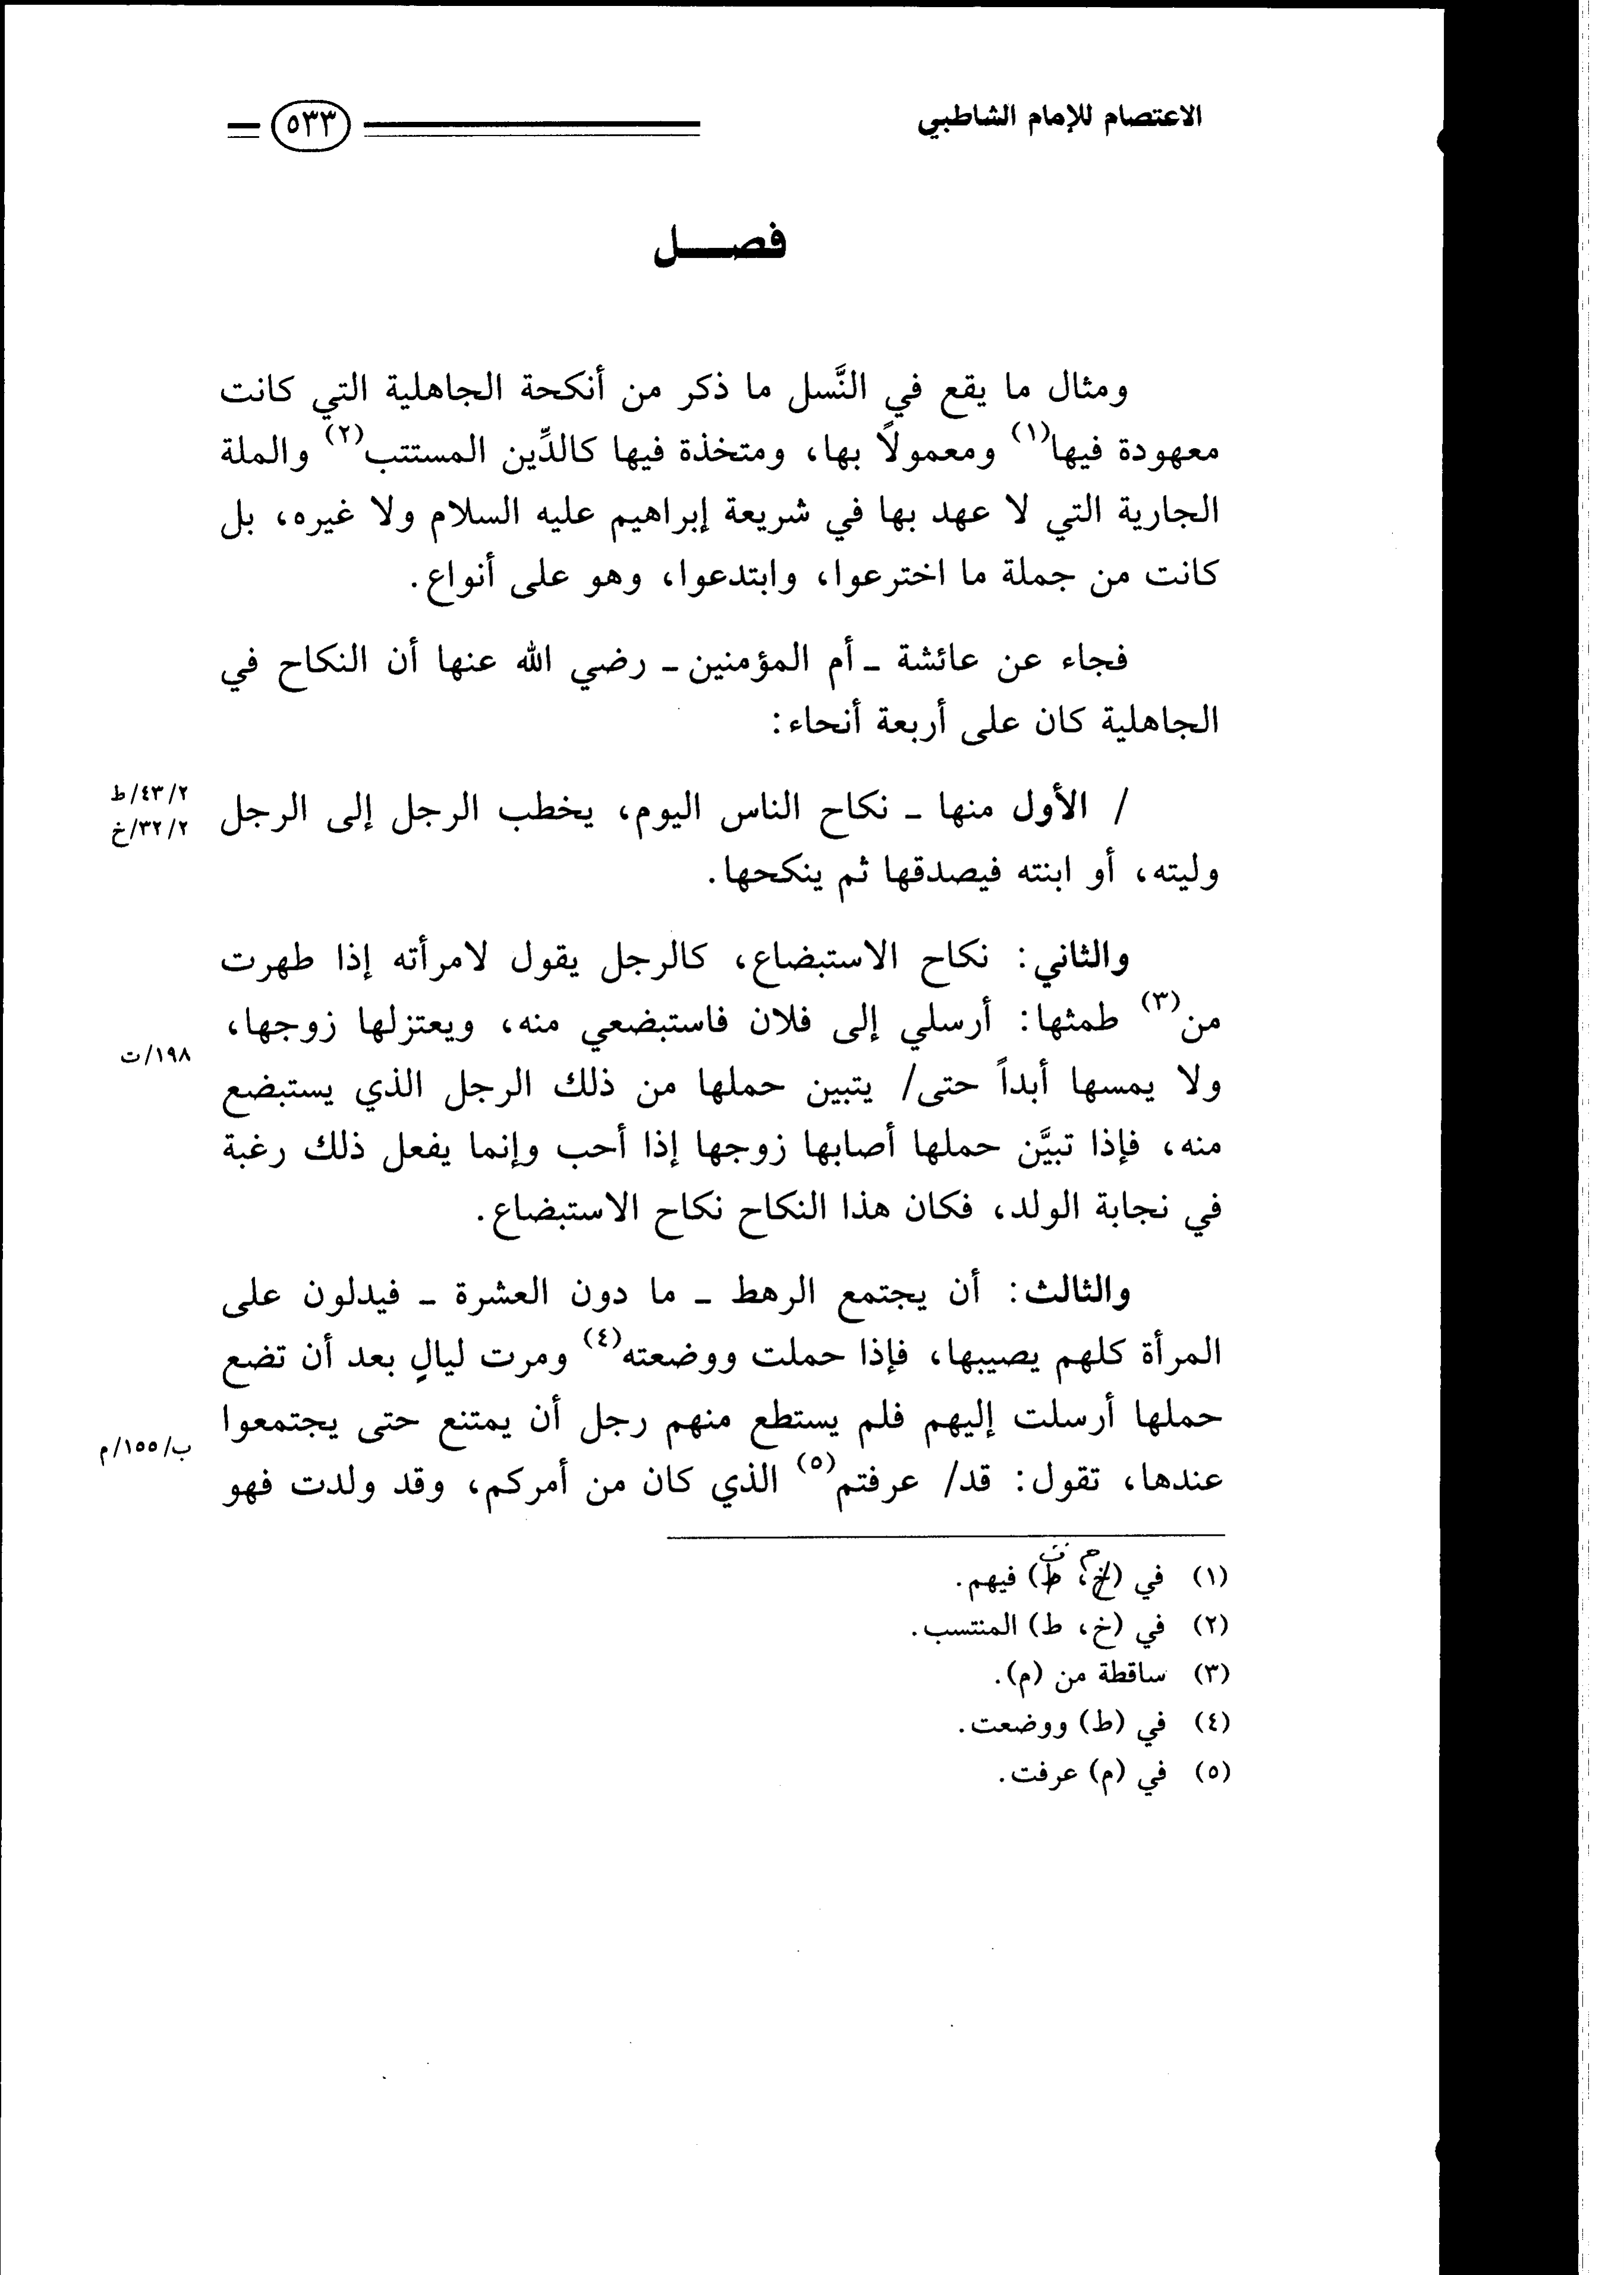 الاعتصام للإمام الشاطبي
٥٣٣
فصـــل
ومثال ما يقع في النَّسل ما ذكر من أنكحة الجاهلية التي كانت
معهودة فيها(١) ومعمولاً بها، ومتخذة فيها كالدِّين المستتب(٢) والملة
الجارية التي لا عهد بها في شريعة إبراهيم عليه السلام ولا غيره، بل
كانت من جملة ما اخترعوا، وابتدعوا، وهو على أنواع.
فجاء عن عائشة ـ أم المؤمنين ـ رضي الله عنها أن النكاح في
الجاهلية كان على أربعة أنحاء:
/ الأول منها ـ نكاح الناس اليوم، يخطب الرجل إلى الرجل
٤٣/٢/ط
٣٢/٢/خ
وليته، أو ابنته فيصدقها ثم ينكحها.
والثاني: نكاح الاستبضاع، كالرجل يقول لامرأته إذا طهرت
من(٣) طمثها: أرسلي إلى فلان فاستبضعي منه، ويعتزلها زوجها،
١٩٨/ت
ولا يمسها أبداً حتى/ يتبين حملها من ذلك الرجل الذي يستبضع
منه، فإذا تبيَّن حملها أصابها زوجها إذا أحب وإنما يفعل ذلك رغبة
في نجابة الولد، فكان هذا النكاح نكاح الاستبضاع.
والثالث: أن يجتمع الرهط ـ ما دون العشرة ـ فيدلون على
المرأة كلهم يصيبها، فإذا حملت ووضعته(٤) ومرت ليالٍ بعد أن تضع
حملها أرسلت إليهم فلم يستطع منهم رجل أن يمتنع حتى يجتمعوا
ب/١٥٥/م
عندها، تقول: قد/ عرفتم(٥) الذي كان من أمركم، وقد ولدت فهو
(١) في (خ، ط) فيهم.
(٢) في (خ، ط) المنتسب.
(٣) ساقطة من (م).
(٤) في (ط) ووضعت.
(٥) في (م) عرفت.